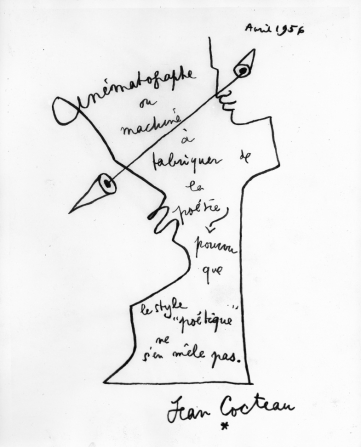 Avril 1956
Cinématographe
ou
machine
à
fabriquer de
la
poésie
pourvu
que
le style
"poétique"
ne
s'en mêle pas.
Jean Cocteau
*